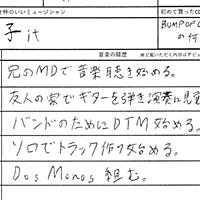 仲のいいミュージシャン
初めて買ったCD
子 it
BUMP OF C
の何
音楽の経歴
※記載いただく内容はデビュ
兄のMDで音楽聴き始める。
友人の家でギターを弾き演奏に目覚
バンドのためにDTM始める。
ソロでトラック作り始める。
Dos Monos 組む。